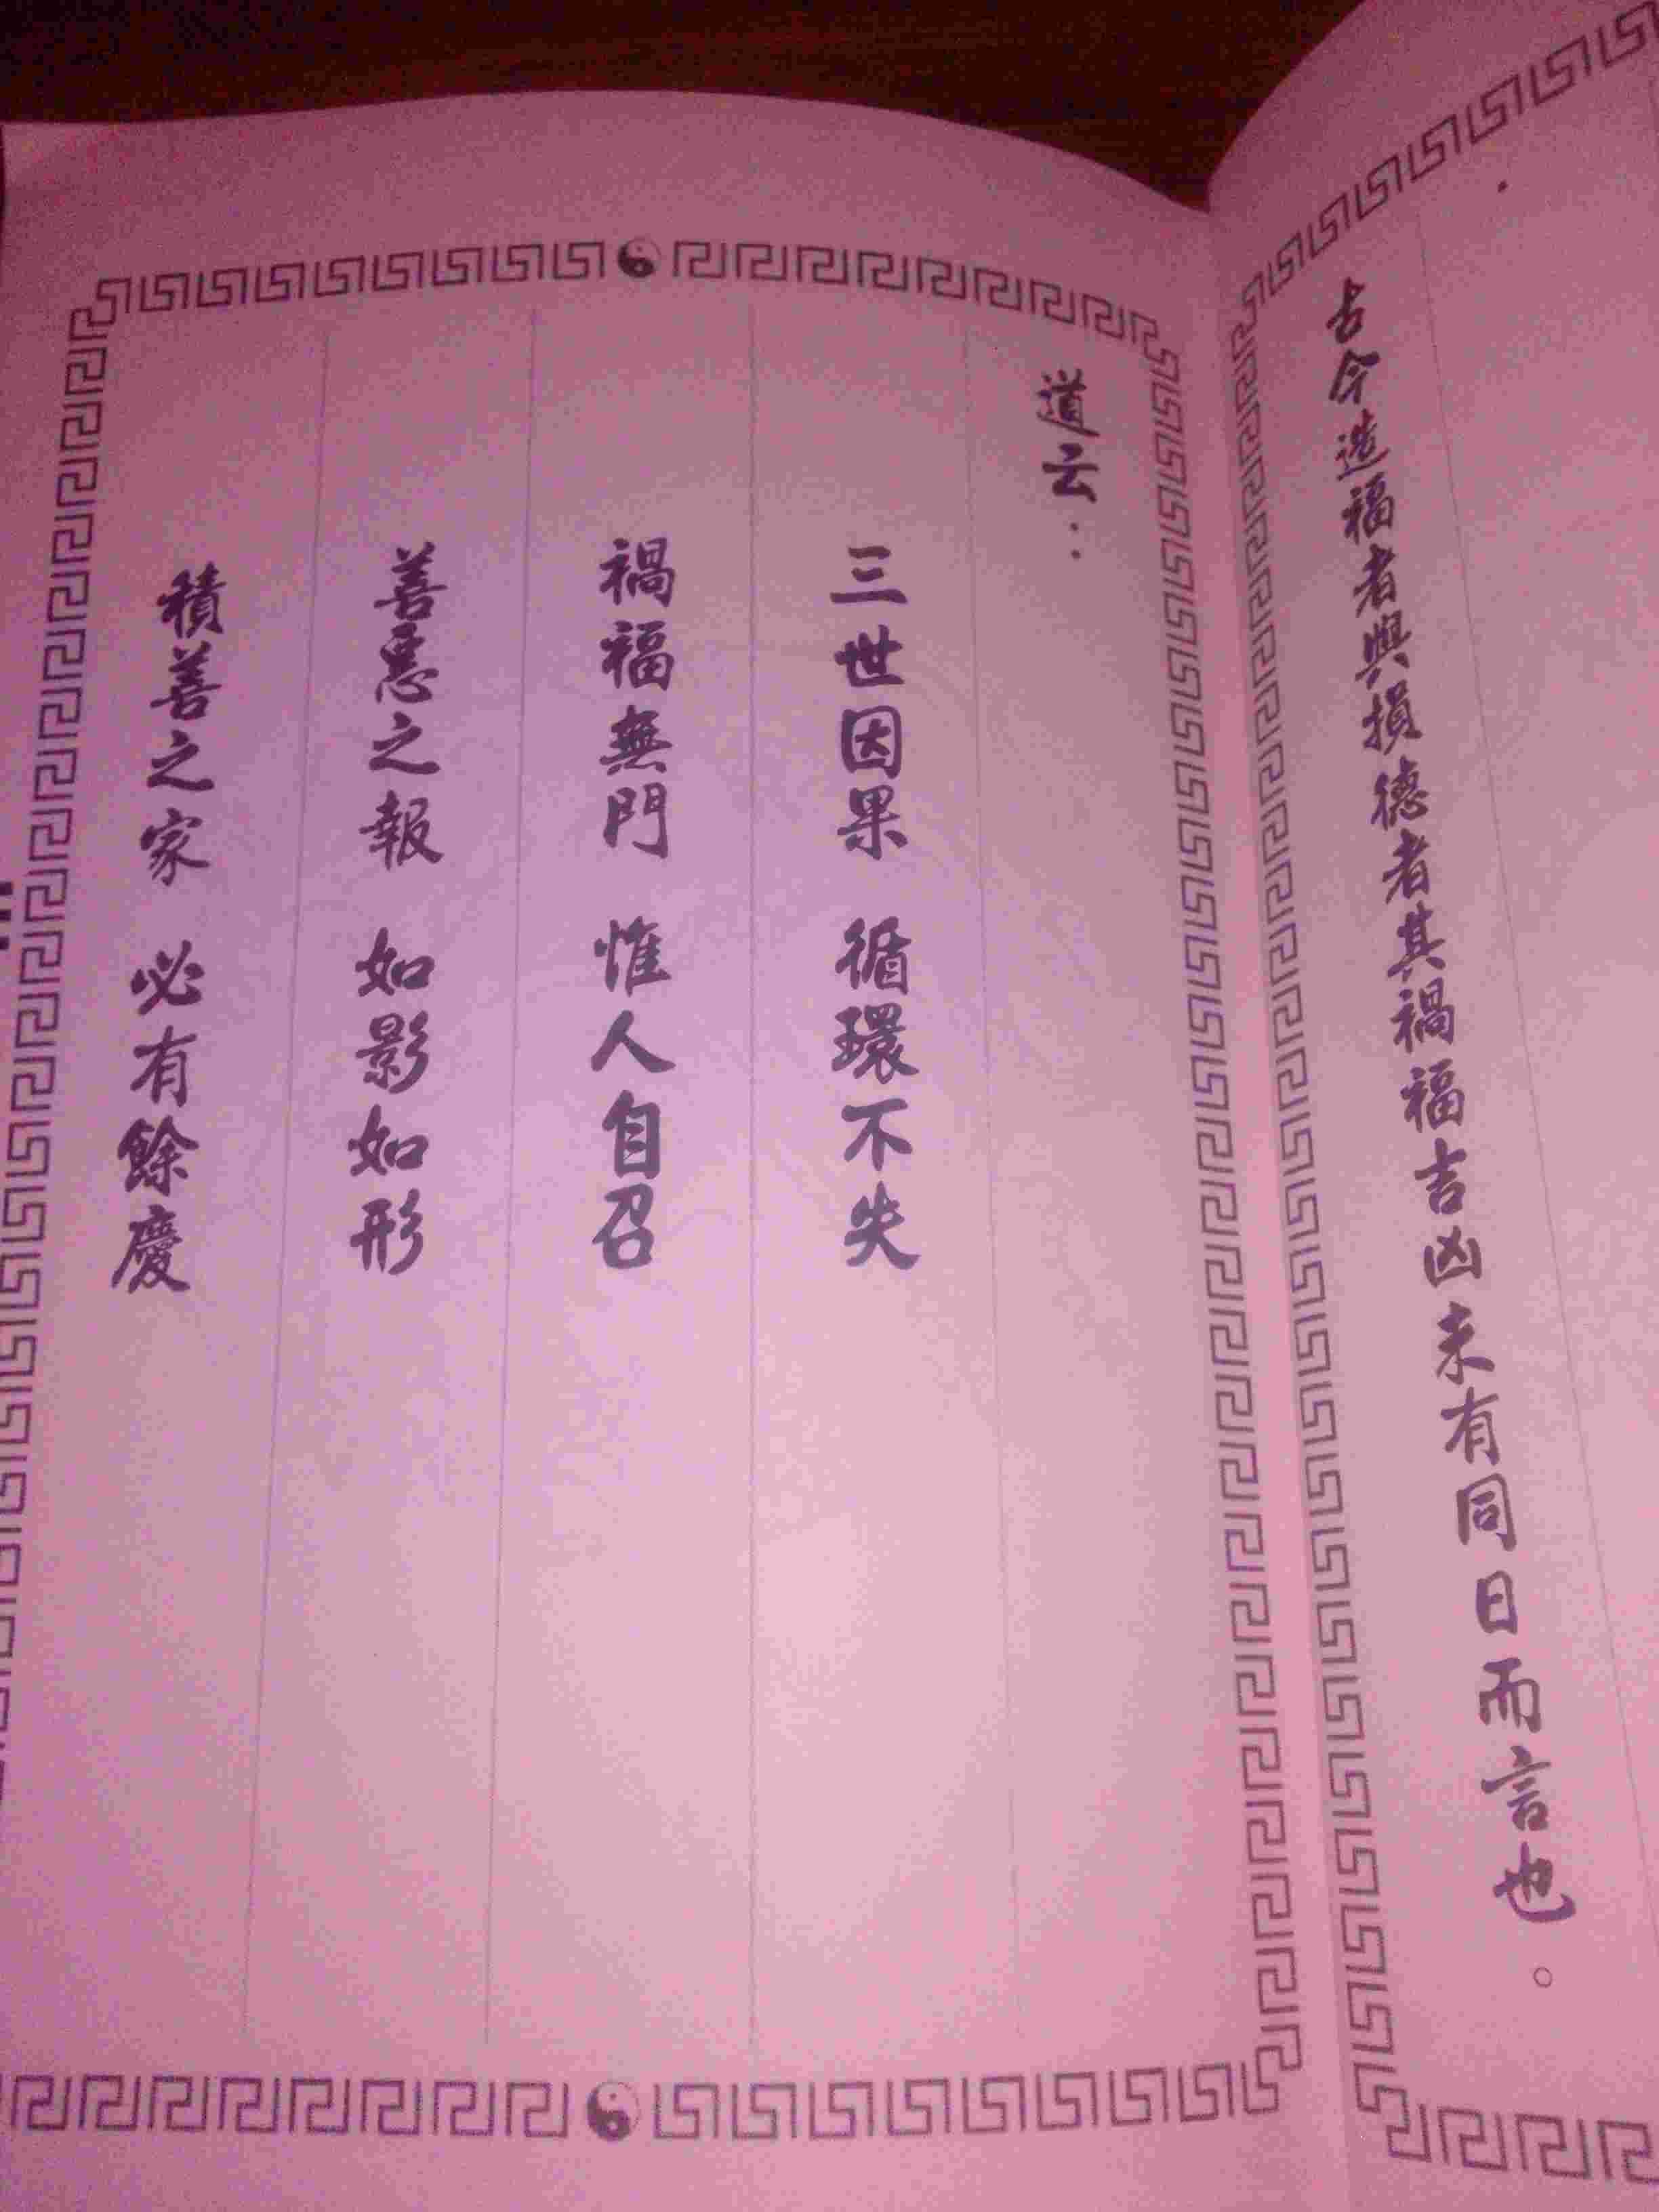 古今造福者與損德者其禍福吉凶未有同日而言也。
道云：
三世因果 循環不失
禍福無門 惟人自召
善惡之報 如影如形
積善之家 必有餘慶